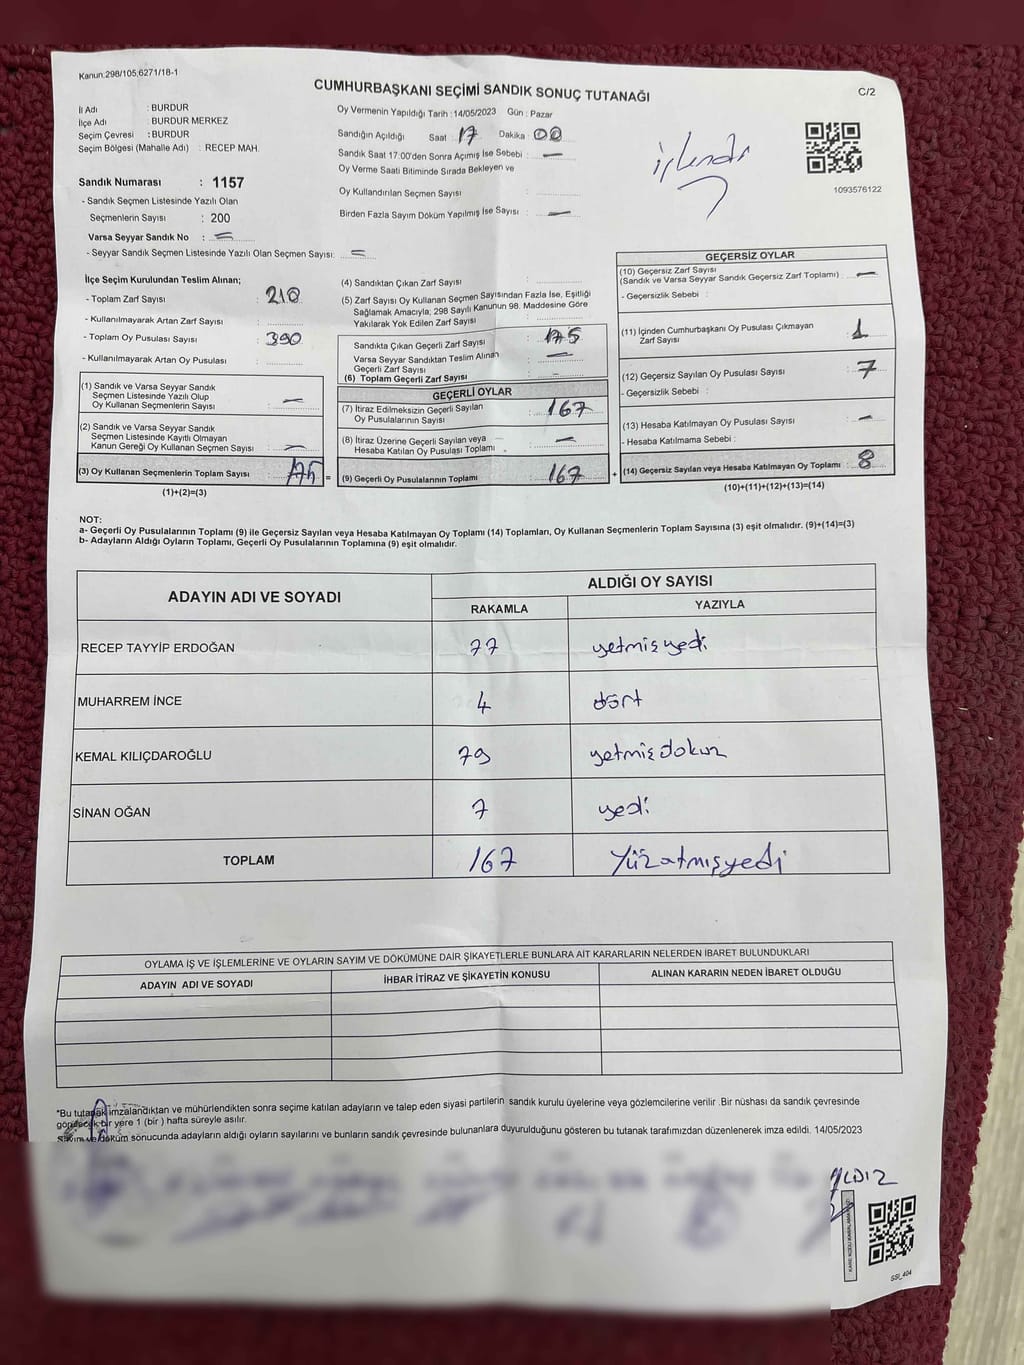 Kanun.298/105,6271/18-1
CUMHURBAŞKANI SEÇİMİ SANDIK SONUÇ TUTANAĞI
C/2
İl Adı : BURDUR
İlçe Adı : BURDUR MERKEZ
Seçim Çevresi : BURDUR
Seçim Bölgesi (Mahalle Adı) : RECEP MAH.
Oy Vermenin Yapıldığı Tarih : 14/05/2023 Gün : Pazar
Sandığın Açıldığı Saat : 17 Dakika : 00
Sandık Saat 17:00'den Sonra Açımış İse Sebebi : —
Oy Verme Saati Bitiminde Sırada Bekleyen ve
Oy Kullandırılan Seçmen Sayısı :
Birden Fazla Sayım Döküm Yapılmış İse Sayısı : —
işlendi
1093576122
Sandık Numarası : 1157
- Sandık Seçmen Listesinde Yazılı Olan
Seçmenlerin Sayısı : 200
Varsa Seyyar Sandık No : —
- Seyyar Sandık Seçmen Listesinde Yazılı Olan Seçmen Sayısı: —
İlçe Seçim Kurulundan Teslim Alınan;
- Toplam Zarf Sayısı : 210
- Kullanılmayarak Artan Zarf Sayısı :
- Toplam Oy Pusulası Sayısı : 390
- Kullanılmayarak Artan Oy Pusulası :
(1) Sandık ve Varsa Seyyar Sandık
Seçmen Listesinde Yazılı Olup
Oy Kullanan Seçmenlerin Sayısı : —
(2) Sandık ve Varsa Seyyar Sandık
Seçmen Listesinde Kayıtlı Olmayan
Kanun Gereği Oy Kullanan Seçmen Sayısı : —
(3) Oy Kullanan Seçmenlerin Toplam Sayısı : 175
(1)+(2)=(3)
(4) Sandıktan Çıkan Zarf Sayısı :
(5) Zarf Sayısı Oy Kullanan Seçmen Sayısından Fazla İse, Eşitliği
Sağlamak Amacıyla; 298 Sayılı Kanunun 98. Maddesine Göre
Yakılarak Yok Edilen Zarf Sayısı :
Sandıkta Çıkan Geçerli Zarf Sayısı : 175
Varsa Seyyar Sandıktan Teslim Alınan
Geçerli Zarf Sayısı : —
(6) Toplam Geçerli Zarf Sayısı :
GEÇERLİ OYLAR
(7) İtiraz Edilmeksizin Geçerli Sayılan
Oy Pusulasının Sayısı : 167
(8) İtiraz Üzerine Geçerli Sayılan veya
Hesaba Katılan Oy Pusulası Toplamı : —
(9) Geçerli Oy Pusulalarının Toplamı : 167
GEÇERSİZ OYLAR
(10) Geçersiz Zarf Sayısı
(Sandık ve Varsa Seyyar Sandık Geçersiz Zarf Toplamı) : —
- Geçersizlik Sebebi :
(11) İçinden Cumhurbaşkanı Oy Pusulası Çıkmayan
Zarf Sayısı : 1
(12) Geçersiz Sayılan Oy Pusulası Sayısı : 7
- Geçersizlik Sebebi :
(13) Hesaba Katılmayan Oy Pusulası Sayısı : —
- Hesaba Katılmama Sebebi :
(14) Geçersiz Sayılan veya Hesaba Katılmayan Oy Toplamı : 8
(10)+(11)+(12)+(13)=(14)
NOT:
a- Geçerli Oy Pusulalarının Toplamı (9) ile Geçersiz Sayılan veya Hesaba Katılmayan Oy Toplamı (14) Toplamları, Oy Kullanan Seçmenlerin Toplam Sayısına (3) eşit olmalıdır. (9)+(14)=(3)
b- Adayların Aldığı Oyların Toplamı, Geçerli Oy Pusulalarının Toplamına (9) eşit olmalıdır.
ADAYIN ADI VE SOYADI
ALDIĞI OY SAYISI
RAKAMLA YAZIYLA
RECEP TAYYİP ERDOĞAN 77 yetmiş yedi
MUHARREM İNCE 4 dört
KEMAL KILIÇDAROĞLU 79 yetmiş dokuz
SİNAN OĞAN 7 yedi
TOPLAM 167 Yüzatmışyedi
OYLAMA İŞ VE İŞLEMLERİNE VE OYLARIN SAYIM VE DÖKÜMÜNE DAİR ŞİKAYETLERLE BUNLARA AİT KARARLARIN NELERDEN İBARET BULUNDUKLARI
ADAYIN ADI VE SOYADI İHBAR İTİRAZ VE ŞİKAYETİN KONUSU ALINAN KARARIN NEDEN İBARET OLDUĞU
*Bu tutanak imzalandıktan ve mühürlendikten sonra seçime katılan adayların ve talep eden siyasi partilerin sandık kurulu üyelerine veya gözlemcilerine verilir .Bir nüshası da sandık çevresinde
görülecek bir yere 1 (bir ) hafta süreyle asılır.
Sayım ve döküm sonucunda adayların aldığı oyların sayılarını ve bunların sandık çevresinde bulunanlara duyurulduğunu gösteren bu tutanak tarafımızdan düzenlenerek imza edildi. 14/05/2023
GSI_404